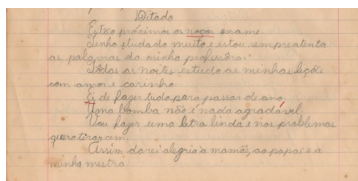 Ditado
Estão próximos os noços exames
tenho estudado muito e estou sempre atenta
as palavras da minha professora.
Todas as noites estudo as minhas lições
com amor e carinho
Ei de fazer tudo para passar de ano.
Uma bomba não é nada agradável.
Vou fazer uma letra linda e nos problemas
quero tirar cem.
Assim darei alegria a mamãe, ao papai e a
minha mestra.